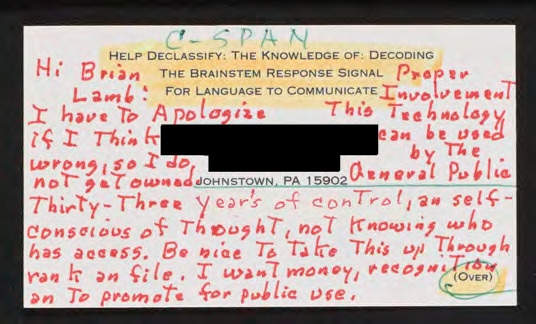 C-SPAN
HELP DECLASSIFY: THE KNOWLEDGE OF: DECODING
THE BRAINSTEM RESPONSE SIGNAL
FOR LANGUAGE TO COMMUNICATE
Hi Brian
Lamb!
I have To Apologize
if I Think
wrong, so I do
not get owned
Proper
Involvement
This Technology
can be used
by The
General Public
JOHNSTOWN, PA 15902
Thirty-Three year's of control, an self-
conscious of Thought, not Knowing who
has access. Be nice To Take This up Through
rank an file. I want money, recognition
an To promote for public use.
(OVER)